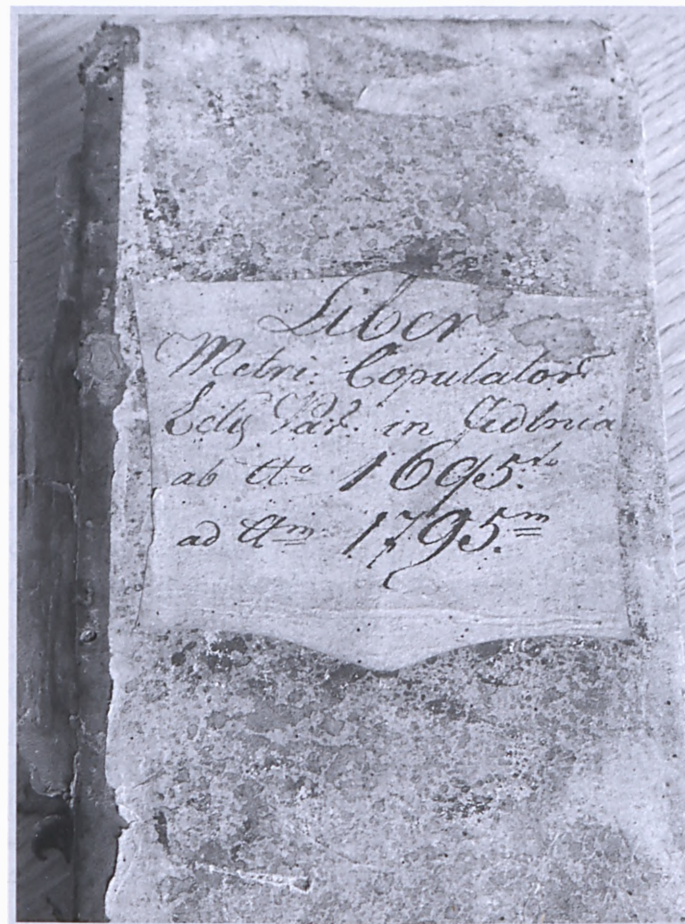 Liber
Metri: Copulator
Ecliæ Par: in Jedlnia
ab Ao 1695to
ad Am 1795m